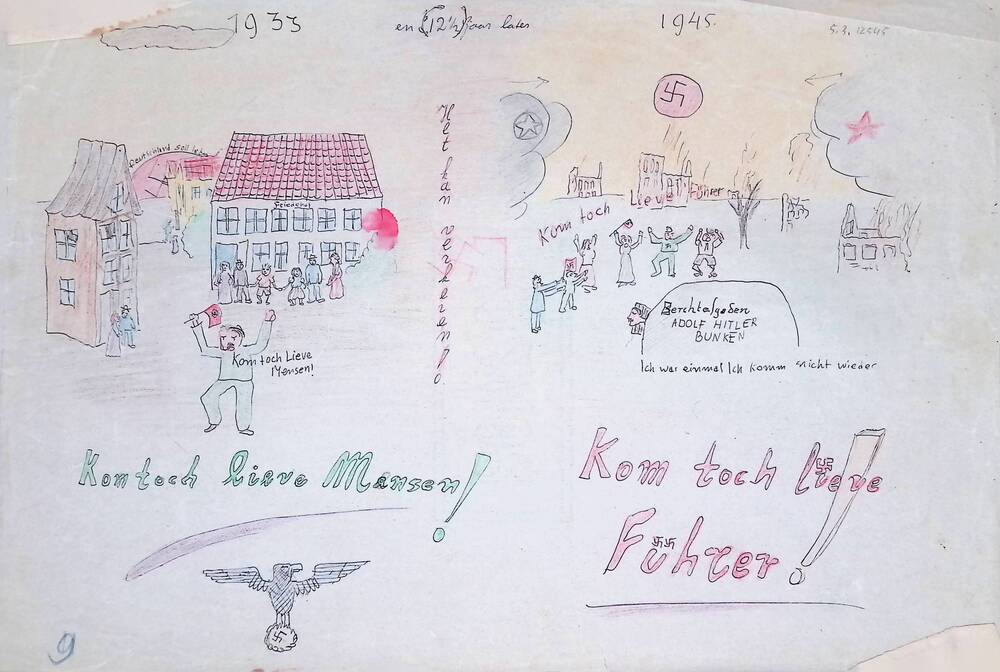 1933
en (12½) jaar later
1945.
5.3.12545
Deutschland soll leben
Het kan verkeren!o.
Kom toch Lieve
Mensen!
Kom toch lieve Mansen!
9
Kom toch Lieve Führer
Berchtesgaden
ADOLF HITLER
BUNKEN
Ich war einmal Ich komm nicht wieder
Kom toch lieve
Führer!